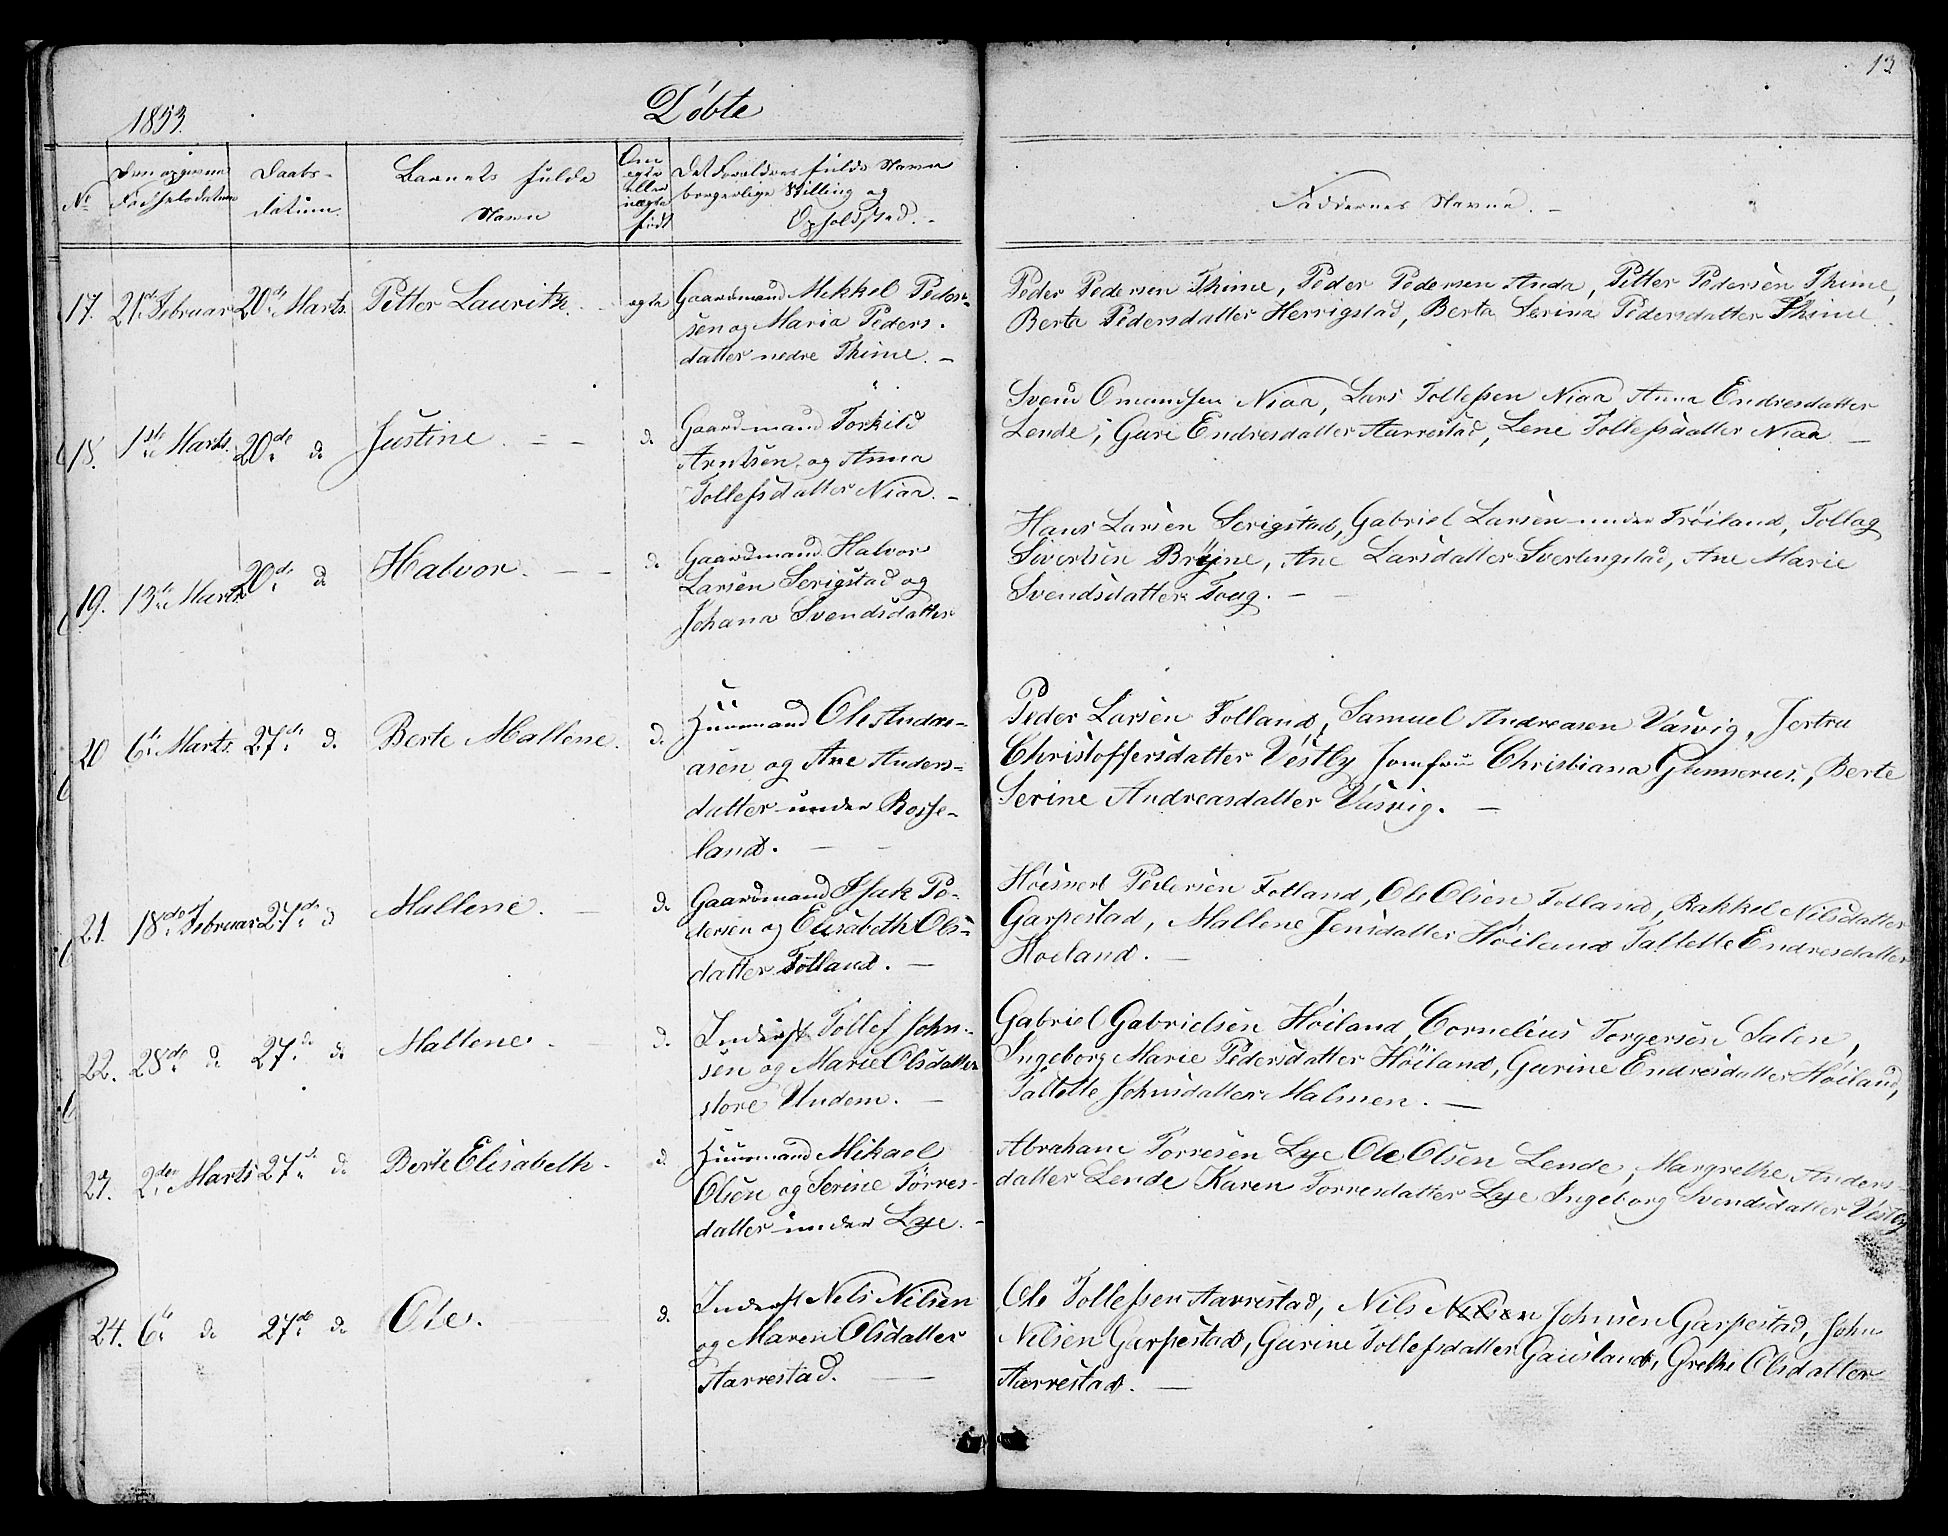 13
1853.
Døbte
No
Den opgivne Fødselsdatum
Daabs-datum.
Barnets fulde Navn
Om ægte eller uægte født
Det Forældres fulde Navn borgerlige Stilling og Opholdsted. -
Faddernes Navne. -
17. 21de Februar 20de Marts. Petter Lauritz. - ægte Gaardmand Mikkel Peder-
sen og Maria Peders.
datter nedre Thime. -
Peder Pedersen Thime, Peder Pedersen Anda, Petter Pedersen Thime,
Berta Pedersdatter Herrigstad, Berta Serina Pedersdatter Thime.
18. 1ste Marts. 20de d. Justine. - - d. Gaardmand Torkild
Arntsen og Anna
Tollefsdatter Niaa. -
Svend Omundsen Niaa, Lars Tollefsen Niaa Anna Endresdatter
Lende, Guri Endresdatter Aarrestad, Lene Tollefsdatter Niaa. -
19. 13de Marts 20de d. Halvor. - - d. Gaardmand Halvor
Larsen Serigstad og
Johana Svendsdatter
Hans Larsen Serigstad, Gabriel Larsen under Frøiland, Tollag
Sivertsen Bryne, Ane Larsdatter Sverlingstad, Ane Marie
Svendsdatter Toug. -
20 6te Marts. 27de d. Berte Mallene. d. Huusmand Ole Andre-
asen og Ane Anders-
datter under Rosse-
land. - -
Peder Larsen Folland, Samuel Andreasen Vasvig, Jertru
Christoffersdatter Vestly Jomfru Christiana Gunnerus, Berte
Serine Andreasdatter Vasvig. -
21. 18de Februar 27de d. Mallene. - d. Gaardmand Isak Pe-
dersen og Elisabeth Ols-
datter Folland. -
Høisverd Pedersen Folland, Ole Olsen Folland, Rakkel Nilsdatter
Garpestad, Mallene Jensdatter Høiland Taletle Endresdatter
Høiland. -
22. 28de d. 27de d. Mallene. - d. Inderst Tollef John-
sen og Marie Olsdatter
store Undem. -
Gabriel Gabrielsen Høiland, Cornelius Torgersen Salen,
Ingeborg Marie Pedersdatter Høiland, Gurine Endresdatter Høiland,
Taletle Johnsdatter Malmen. -
23. 2den Marts 27de d. Berte Elisabeth. d. Huusmand Mikael
Olsen og Serine Tørres-
datter under Lye. -
Abraham Torresen Lye Ole Olsen Lende, Margrethe Anders-
datter Lende Karen Torresdatter Lye Ingeborg Svendsdatter Vestly
24. 6te d. 27de d. Ole. d. Inderst Nels Nilsen
og Maren Olsdatter
Aarrestad. - -
Ole Tollefsen Aarrestad, Nils Nelsen Johnsen Garpestad, John
Nelsen Garpestad, Gurine Tollefsdatter Gausland, Grethe Olsdatter
Aarrestad. -